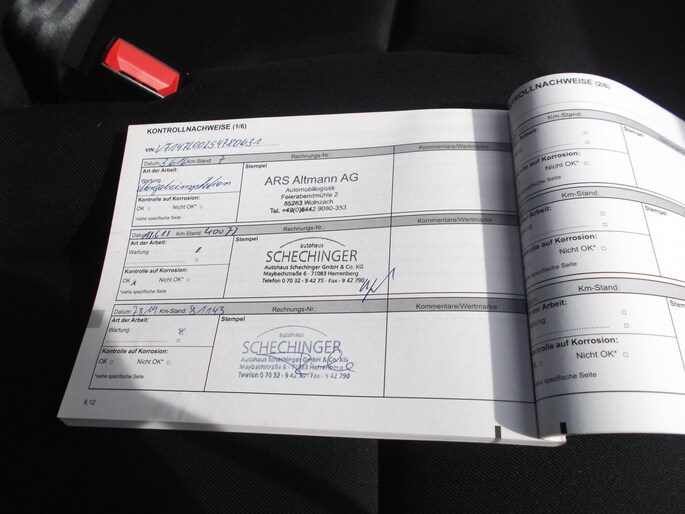 KONTROLLNACHWEISE (1/6)
VIN
Datum Km-Stand: 7 Rechnungs-Nr: Kommentare/Wertmarke
Art der Arbeit:
Wartung
Kontrolle auf Korrosion:
OK Nicht OK*
*siehe spezifische Seite
Stempel
ARS Altmann AG
Automobillogistik
Feierabendmühle 2
85283 Wolnzach
Tel. +49(0)8442 9080-353
Datum Km-Stand: 40077 Rechnungs-Nr: Kommentare/Wertmarke
Art der Arbeit:
Wartung
Kontrolle auf Korrosion:
OK Nicht OK*
*siehe spezifische Seite
Stempel
autohaus
SCHECHINGER
Autohaus Schechinger GmbH & Co. KG
Maybachstraße 6 - 71083 Herrenberg
Telefon 0 70 32 - 9 42 75 - Fax - 9 42 790
Datum Km-Stand: 81143 Rechnungs-Nr: Kommentare/Wertmarke
Art der Arbeit:
Wartung
Kontrolle auf Korrosion:
OK Nicht OK*
*siehe spezifische Seite
Stempel
autohaus
SCHECHINGER
Autohaus Schechinger GmbH & Co. KG
Maybachstraße 6 - 71083 Herrenberg
Telefon 0 70 32 - 9 42 75 - Fax - 9 42 790
6.12
KONTROLLNACHWEISE (2/6)
Km-Stand:
Arbeit:
Kontrolle auf Korrosion:
Nicht OK*
*siehe spezifische Seite
Stempel
Km-Stand:
der Arbeit:
Kontrolle auf Korrosion:
Nicht OK*
*siehe spezifische Seite
Stem
Km-Stand:
der Arbeit:
Kontrolle auf Korrosion:
Nicht OK*
*siehe spezifische Seite
Ste